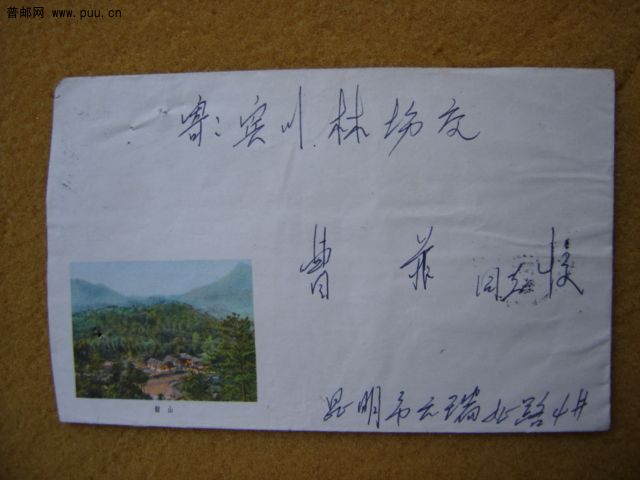 普邮网 www.puu.cn
寄:宾川林场交
曾菲 同志收
韶山
昆明市云瑞北路4井